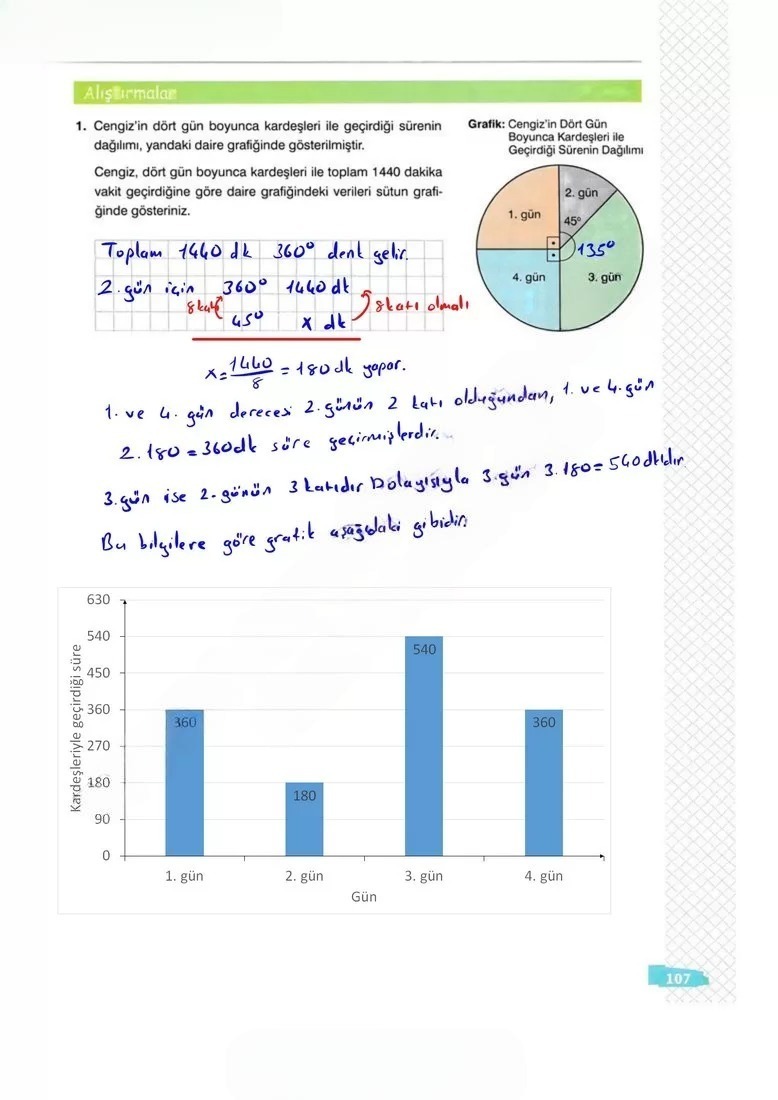 Alıştırmalar
1. Cengiz'in dört gün boyunca kardeşleri ile geçirdiği sürenin
dağılımı, yandaki daire grafiğinde gösterilmiştir.
Cengiz, dört gün boyunca kardeşleri ile toplam 1440 dakika
vakit geçirdiğine göre daire grafiğindeki verileri sütun grafi-
ğinde gösteriniz.
Grafik: Cengiz'in Dört Gün
Boyunca Kardeşleri ile
Geçirdiği Sürenin Dağılımı
2. gün
1. gün
45°
135°
4. gün
3. gün
Toplam 1440 dk 360° denk gelir.
2. gün için 360° 1440 dk
8 katı
8 katı olmalı
45° x dk
x = 1440/8 = 180 dk yapar.
1. ve 4. gün derecesi 2. günün 2 katı olduğundan, 1. ve 4. gün
2.180 = 360dk süre geçirmişlerdir.
3. gün ise 2. günün 3 katıdır Dolayısıyla 3. gün 3.180 = 540 dkdır
Bu bilgilere göre grafik aşağıdaki gibidir.
Kardeşleriyle geçirdiği süre
630
540
450
360
270
180
90
0
360
180
540
360
1. gün
2. gün
3. gün
4. gün
Gün
107